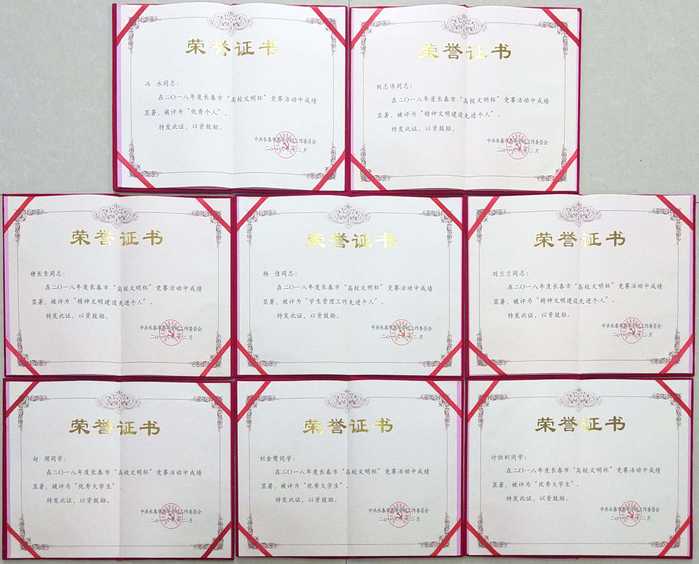 荣誉证书
永同志：
在二〇一八年度长春市“高校文明杯”竞赛活动中成绩
显著，被评为“优秀个人”。
特发此证，以资鼓励。
中共长春市委高校工作委员会
二〇一八年 二月
荣誉证书
同志：
在二〇一八年度长春市“高校文明杯”竞赛活动中成绩
显著，被评为“精神文明建设先进个人”。
特发此证，以资鼓励。
中共长春市委高校工作委员会
二〇一八年 二月
荣誉证书
同志：
在二〇一八年度长春市“高校文明杯”竞赛活动中成绩
显著，被评为“精神文明建设先进个人”。
特发此证，以资鼓励。
中共长春市委高校工作委员会
荣誉证书
杨 同志：
在二〇一八年度长春市“高校文明杯”竞赛活动中成绩
显著，被评为“学生管理工作先进个人”。
特发此证，以资鼓励。
中共长春市委高校工作委员会
荣誉证书
同志：
在二〇一八年度长春市“高校文明杯”竞赛活动中成绩
显著，被评为“精神文明建设先进个人”。
特发此证，以资鼓励。
中共长春市委高校工作委员会
荣誉证书
同学：
在二〇一八年度长春市“高校文明杯”竞赛活动中成绩
显著，被评为“优秀大学生”
特发此证，以资鼓励。
中共长春市委高校工作委员会
荣誉证书
同学：
在二〇一八年度长春市“高校文明杯”竞赛活动中成绩
显著，被评为“优秀大学生”
特发此证，以资鼓励。
中共长春市委高校工作委员会
荣誉证书
同学：
在二〇一八年度长春市“高校文明杯”竞赛活动中成绩
显著，被评为“优秀大学生”。
特发此证，以资鼓励。
中共长春市委高校工作委员会